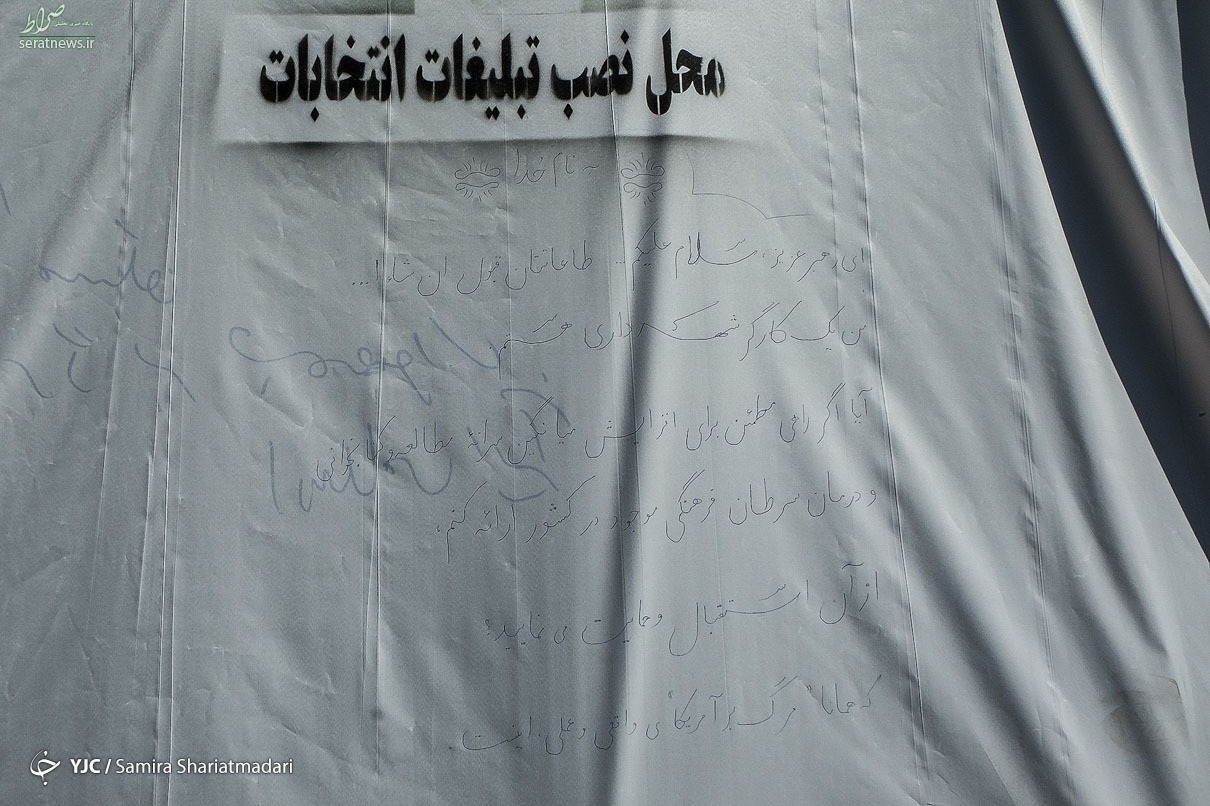 صراط
seratnews.ir
محل نصب تبلیغات انتخابات
به نام خدا
ای رهبر عزیز، سلام علیکم.. طاعاتتان قبول ان شاءا...
من یک کارگر شهرداری هستم.
آیا اگر راهی مطمئن برای افزایش میانگین سرانه مطالعه و کتابخوانی
و درمان سرطان فرهنگی موجود در کشور ارائه کنم،
از آن استقبال و حمایت می نمایید؟
که همانا "مرگ بر آمریکا"ی واقعی و عملی، اینست.
YJC / Samira Shariatmadari